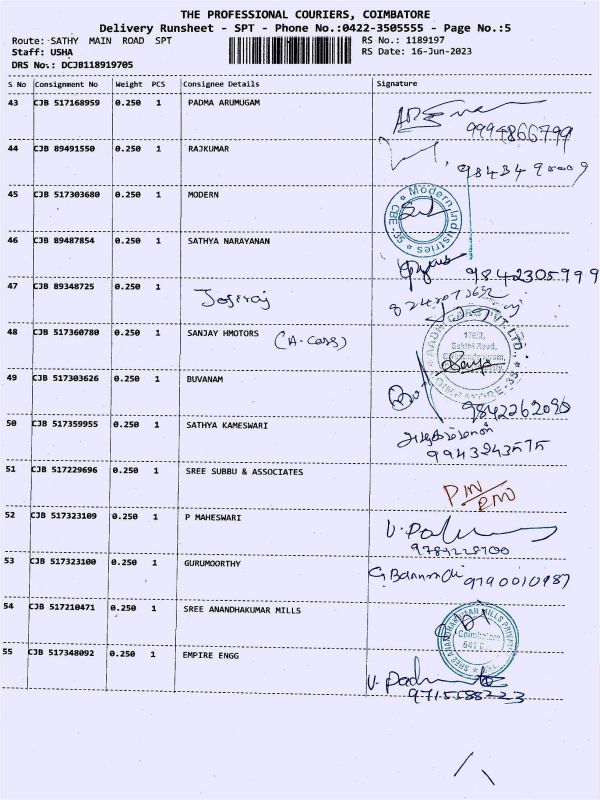 THE PROFESSIONAL COURIERS, COIMBATORE
Delivery Runsheet - SPT - Phone No.:0422-3505555 - Page No.:5
Route: SATHY MAIN ROAD SPT
RS No.: 1189197
Staff: USHA
RS Date: 16-Jun-2023
DRS No.: DCJB118919705
S No Consignment No Weight PCS Consignee Details Signature
43 CJB 517168959 0.250 1 PADMA ARUMUGAM
9994866799
44 CJB 89491550 0.250 1 RAJKUMAR
45 CJB 517303680 0.250 1 MODERN
Modern Industries CBE-35
46 CJB 89487854 0.250 1 SATHYA NARAYANAN
9842305999
47 CJB 89348725 0.250 1
48 CJB 517360780 0.250 1 SANJAY HMOTORS (A. Cars)
PVT. LTD.,
Sakthi Road,
49 CJB 517303626 0.250 1 BUVANAM
50 CJB 517359955 0.250 1 SATHYA KAMESWARI
9943243575
51 CJB 517229696 0.250 1 SREE SUBBU & ASSOCIATES
52 CJB 517323109 0.250 1 P MAHESWARI
53 CJB 517323100 0.250 1 GURUMOORTHY
54 CJB 517210471 0.250 1 SREE ANANDHAKUMAR MILLS
SREE ANANDHAKUMAR MILLS
Coimbatore
55 CJB 517348092 0.250 1 EMPIRE ENGG